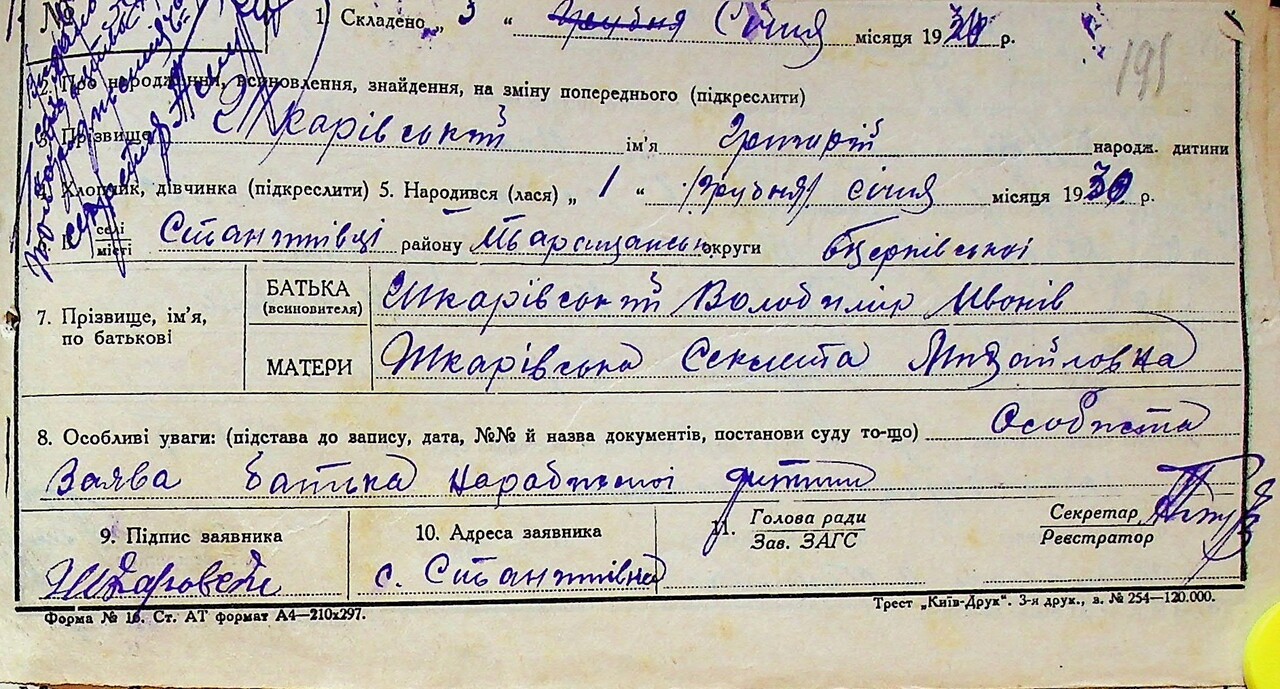 1. Складено „ 3 “ грудня Січня місяця 1930 р.
195
2. Про народження, всиновлення, знайдення, на зміну попереднього (підкреслити)
3. Прізвище Шкарівський ім'я Григорій народж. дитини
Хлопчик, дівчинка (підкреслити) 5. Народився (лася) „ 1 “ /грудня/ січня місяця 1930 р.
селі
місті Станишівці району Таращанськ округи Білоцерківської
7. Прізвище, ім'я, по батькові
БАТЬКА (всиновителя) Шкарівський Володимир Іванів
МАТЕРИ Шкарівська Секлета Михайловна
8. Особливі уваги: (підстава до запису, дата, №№ й назва документів, постанови суду то-що) Особиста
Заява батька народженої дитини
9. Підпис заявника
10. Адреса заявника
с. Станишівка
11. Голова ради
Зав. ЗАГС
Секретар
Реєстратор
Форма № 16. Ст. АТ формат А4—210х297.
Трест „Київ-Друк“. 3-я друк., в. № 254—120.000.